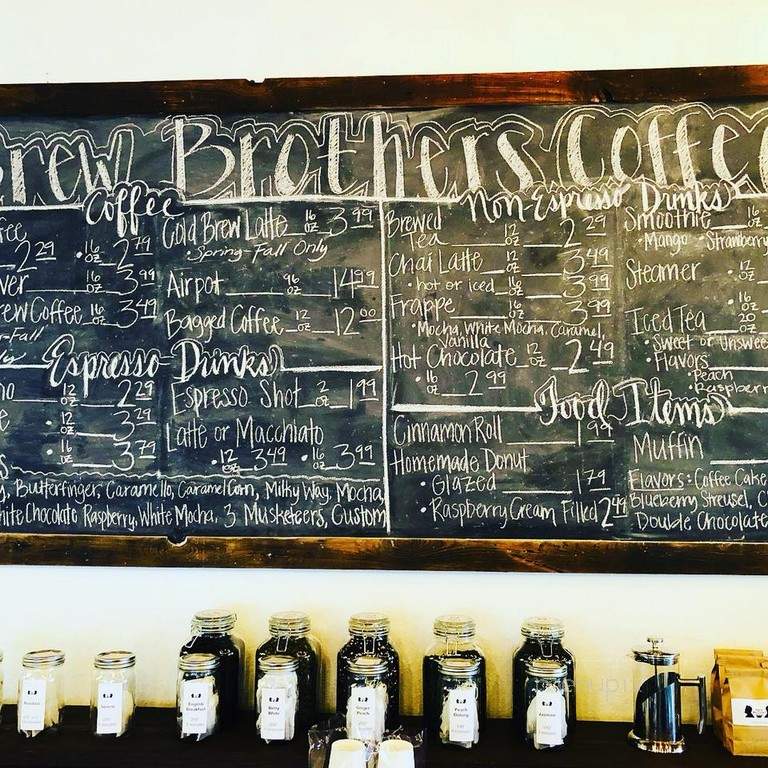 Brew Brothers Coffee
Coffee
2 29
16 oz 2 79
16 oz 3 99
Brew Coffee 16 oz 3 49
Cold Brew Latte 16 oz 3 99
• Spring-Fall Only
Airpot 96 oz 14 99
Bagged Coffee 12 oz 12 00
Espresso Drinks
12 oz 2 29
• 12 oz 3 29
• 16 oz 3 79
Espresso Shot 2 oz 1 99
Latte or Macchiato
• 12 oz 3 49 • 16 oz 3 99
Butterfinger, Caramello, Caramel Corn, Milky Way, Mocha,
White Chocolate Raspberry, White Mocha, 3 Musketeers, Custom
Non-Espresso Drinks
Brewed
Tea 12 oz 2 29
Chai Latte 12 oz 3 49
• hot or iced 16 oz 3 99
Frappe 16 oz 3 99
• Mocha, White Mocha, Caramel,
Vanilla
Hot Chocolate 12 oz 2 49
• 16 oz 2 99
Smoothie 16 oz
• Mango • Strawberry
Steamer • 12 oz
• 16 oz
Iced Tea 20 oz
• Sweet or Unsweet
• Flavors
• Peach
• Raspberry
Food Items
Cinnamon Roll 1 99
Homemade Donut
• Glazed 1 79
• Raspberry Cream Filled 2 49
Muffin
Flavors: Coffee Cake
Blueberry Streusel,
Double Chocolate
English Breakfast
Ginger Peach
Peach Oolong